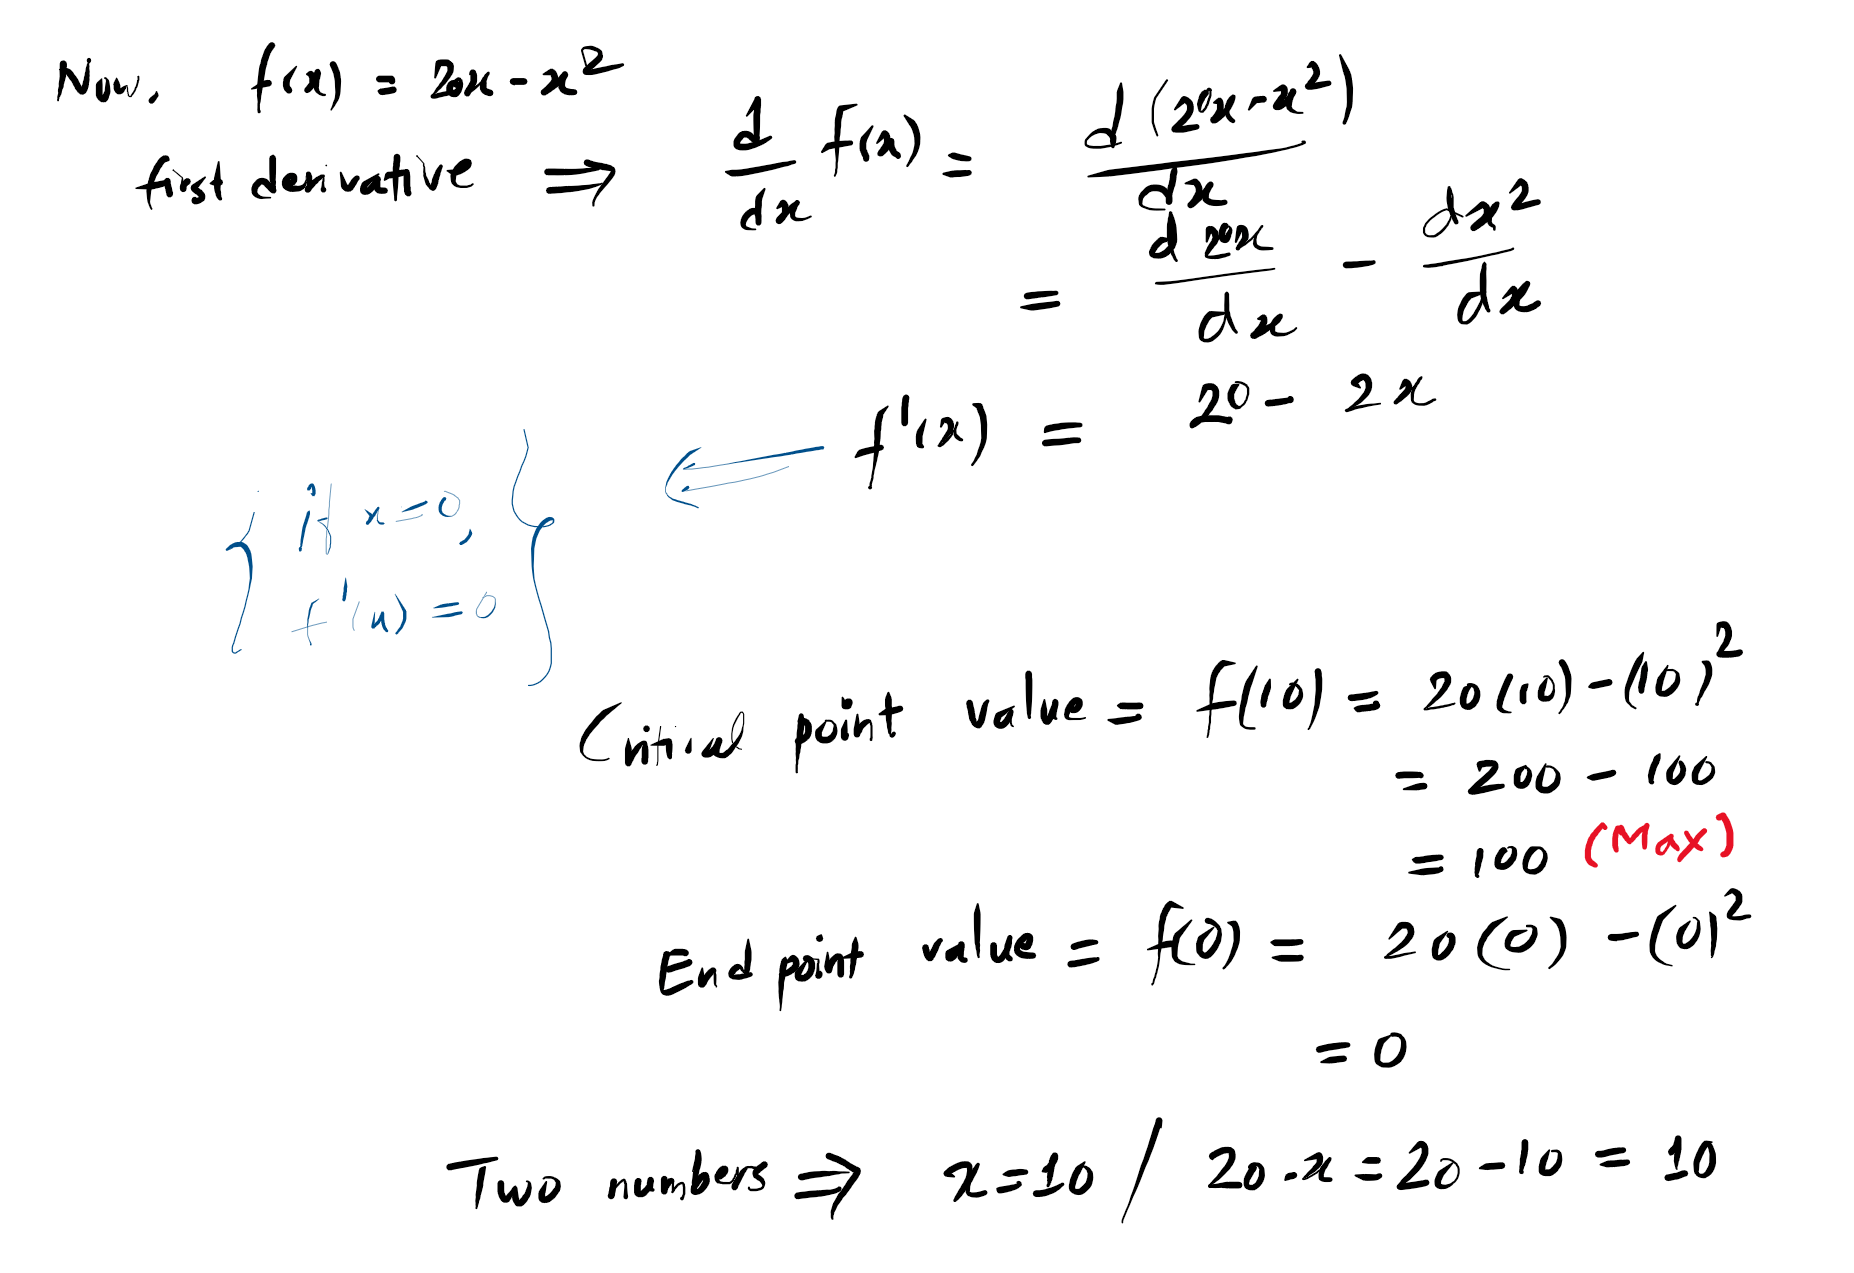 Now, f(x) = 20x - x²
first derivative ⇒ d/dx f(x) = d(20x-x²)/dx
= d 20x/dx - dx²/dx
f'(x) = 20 - 2x
{ if x=0, }
f'(x) = 0
Critical point value = f(10) = 20(10) - (10)²
= 200 - 100
= 100 (Max)
End point value = f(0) = 20(0) - (0)²
= 0
Two numbers ⇒ x=10 / 20-x = 20-10 = 10